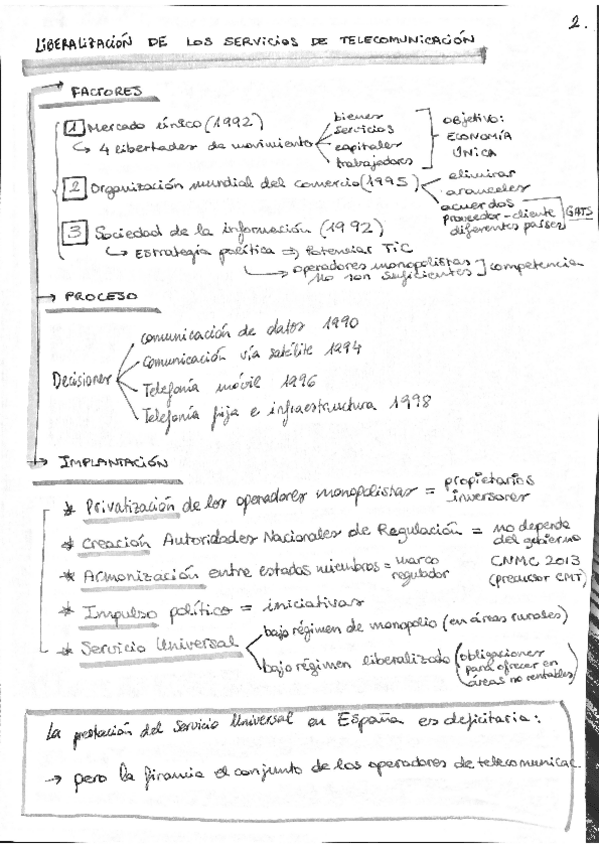 2.
LIBERALIZACIÓN DE LOS SERVICIOS DE TELECOMUNICACIÓN
→ FACTORES
1 Mercado único (1992)
↳ 4 libertades de movimiento
bienes
servicios
capitales
trabajadores
objetivo:
ECONOMÍA
ÚNICA
2 Organización mundial del comercio (1995)
eliminar
aranceles
acuerdos
proveedor-cliente
diferentes países
GATS
3 Sociedad de la información (1992)
↳ Estrategia política ⇒ Potenciar TIC
↳ operadores monopolistas
no son suficientes ] competencia
→ PROCESO
Decisiones
comunicación de datos 1990
Comunicación vía satélite 1994
Telefonía móvil 1996
Telefonía fija e infraestructura 1998
→ IMPLANTACIÓN
* Privatización de los operadores monopolistas = propietarios
inversores
* Creación Autoridades Nacionales de Regulación = no depende
del gobierno
* Armonización entre estados miembros = marco
regulador
CNMC 2013
(precursor CMT)
* Impulso político = iniciativas
* Servicio Universal
bajo régimen de monopolio (en áreas rurales)
bajo régimen liberalizado (obligaciones
para ofrecer en
áreas no rentables)
La prestación del Servicio Universal en España es deficitaria:
→ pero la financia el conjunto de los operadores de telecomunicac.